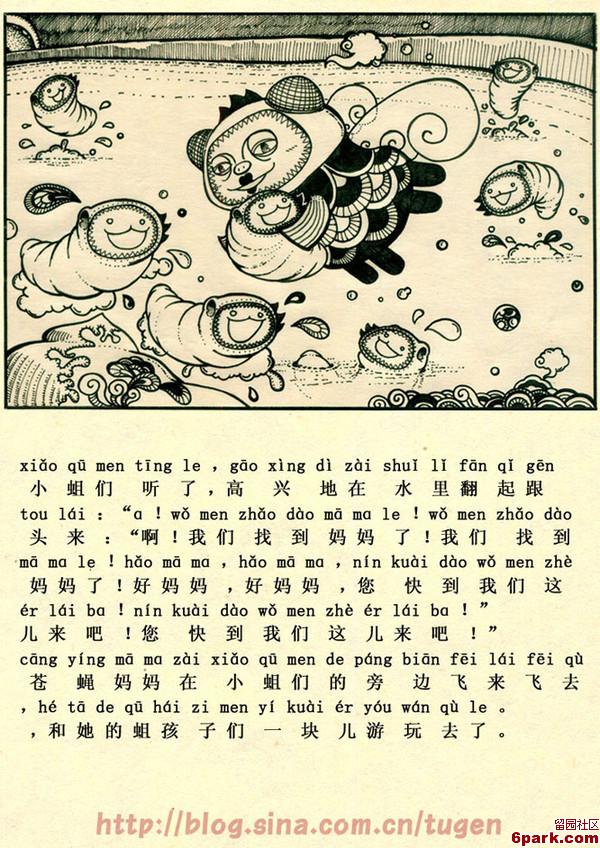 xiǎo qū men tīng le , gāo xìng dì zài shuǐ lǐ fān qǐ gēn
小 蛆们 听 了 , 高 兴 地在 水 里翻 起跟
tou lái : “a ! wǒ men zhǎo dào mā ma le ! wǒ men zhǎo dào
头 来 : “啊 ! 我们 找 到 妈妈 了 ! 我们 找 到
mā ma le ! hǎo mā ma , hǎo mā ma , nín kuài dào wǒ men zhè
妈妈了 ! 好妈妈 , 好妈妈 , 您 快 到 我们 这
ér lái ba ! nín kuài dào wǒ men zhè ér lái ba ! ”
儿来 吧 ! 您 快 到 我们 这 儿来 吧 ! ”
cāng yíng mā ma zài xiǎo qū men de páng biān fēi lái fēi qù
苍 蝇妈妈 在 小 蛆们 的 旁 边 飞来 飞去
, hé tā de qū hái zi men yí kuài ér yóu wán qù le 。
, 和她 的 蛆孩 子们 一 块 儿游 玩 去了 。
http://blog.sina.com.cn/tugen
留园社区
6park.com